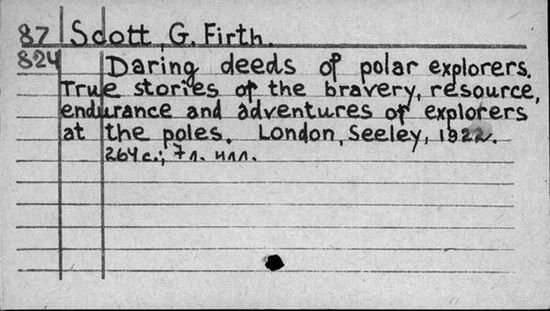 87 Scott, G. Firth.
824 Daring deeds of polar explorers.
True stories of the bravery, resource,
endurance and adventures of explorers
at the poles. London, Seeley, 1922.
264 с.; 7 л. илл.